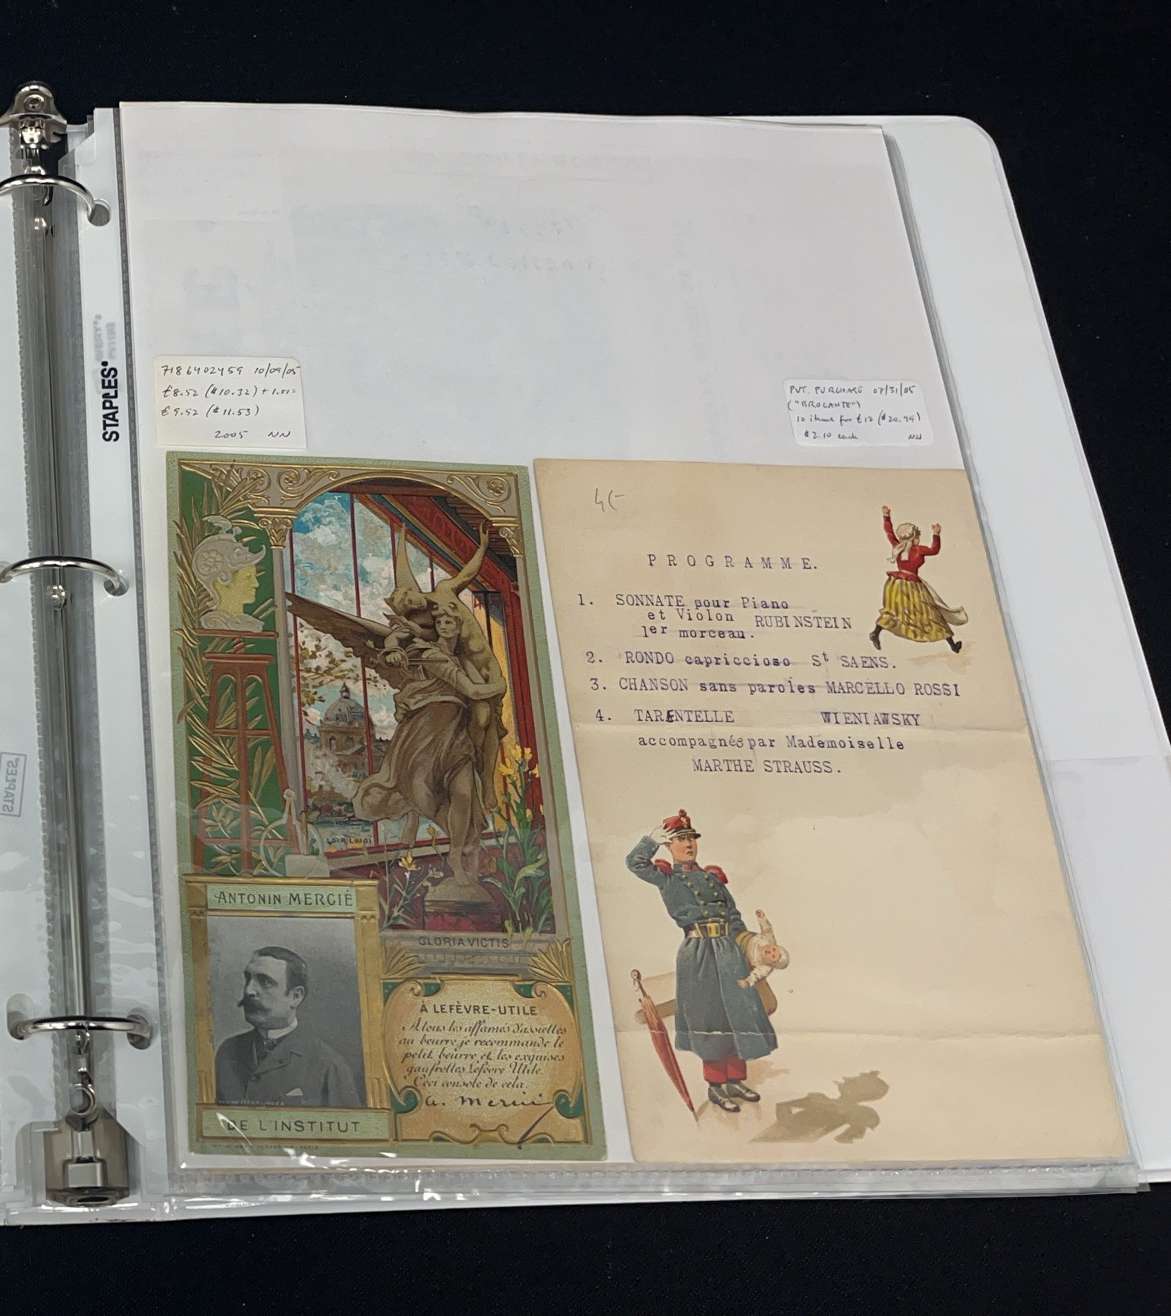 STAPLES
7186402459 10/09/05
€8.52 ($10.32) + 1.00=
€9.52 ($11.53)
2005 NN
PVT. PURCHASE 07/31/05
("BROCANTE")
10 items for €18 ($20.99)
$2.10 each NN
LUIGI LOIR
ANTONIN MERCIÉ
GLORIA VICTIS
À LEFÈVRE-UTILE
A tous les affamés d'assiettes
au beurre, je recommande le
petit beurre et les exquises
gaufrettes Lefèvre Utile.
Ceci console de cela.
A. Mercié
DE L'INSTITUT
PROGRAMME.
1. SONNATE pour Piano
et Violon RUBINSTEIN
1er morceau.
2. RONDO capriccioso St SAENS.
3. CHANSON sans paroles MARCELLO ROSSI
4. TARENTELLE WIENIAWSKY
accompagnés par Mademoiselle
MARTHE STRAUSS.
STAPLES